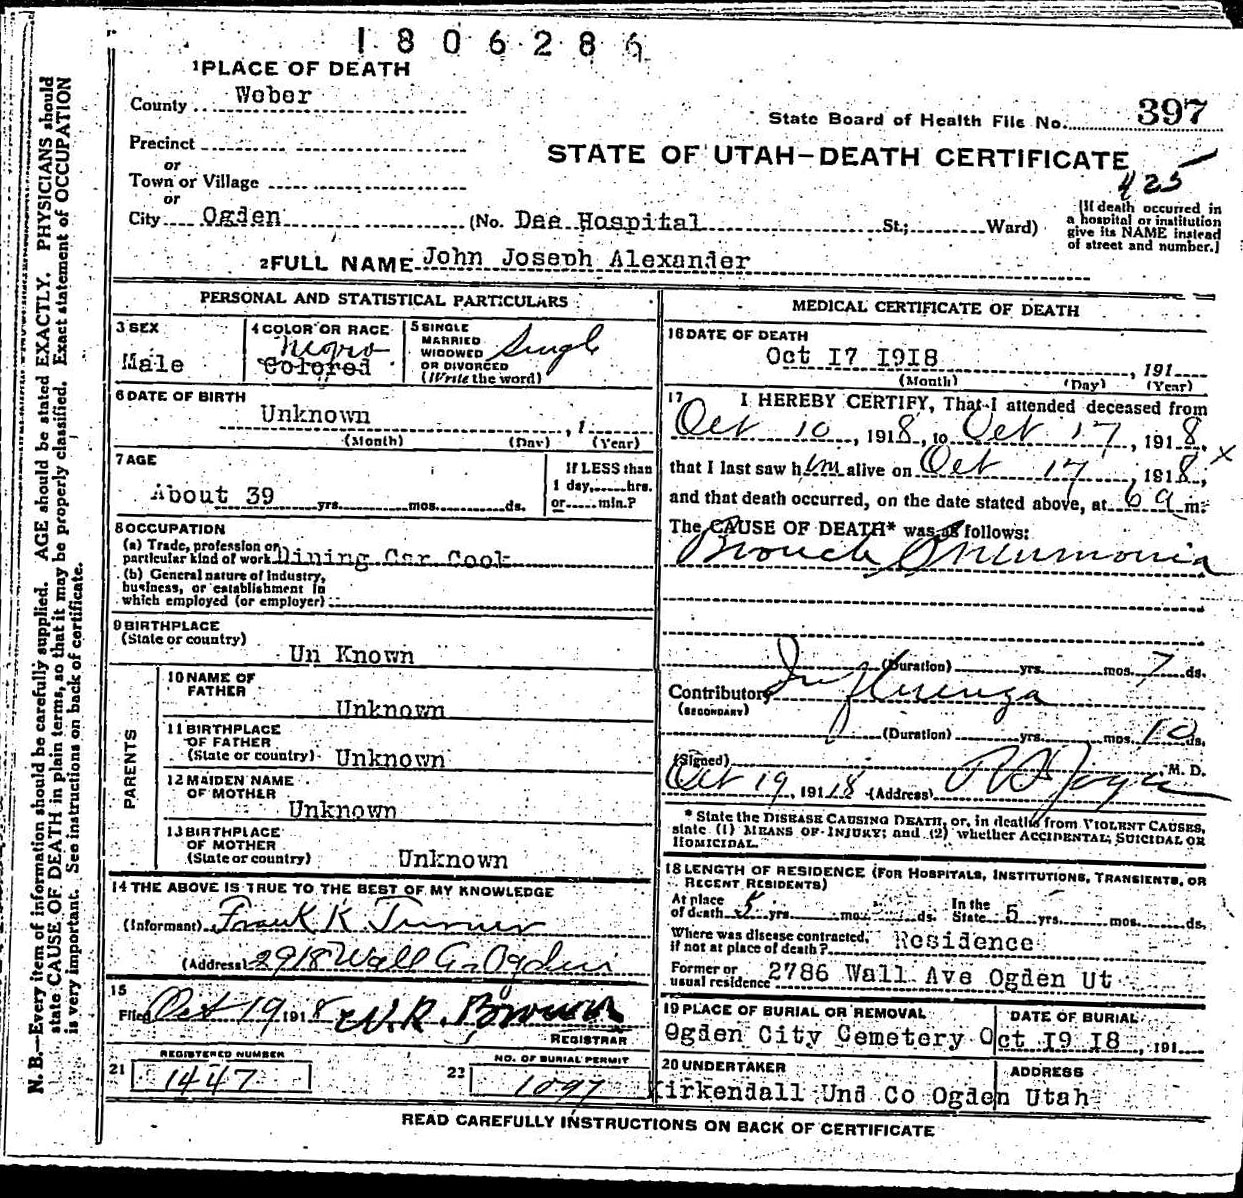 1806286
1 PLACE OF DEATH
County Weber
State Board of Health File No. 397
Precinct
or
STATE OF UTAH-DEATH CERTIFICATE
425
Town or Village
or
City Ogden (No. Dee Hospital St.; Ward)
[If death occurred in
a hospital or institution
give its NAME instead
of street and number.]
2 FULL NAME John Joseph Alexander
PERSONAL AND STATISTICAL PARTICULARS
3 SEX
Male
4 COLOR OR RACE
Negro
Colored
5 SINGLE
MARRIED
WIDOWED
OR DIVORCED
(Write the word)
Single
6 DATE OF BIRTH
Unknown , 1
(Month) (Day) (Year)
7 AGE
About 39 yrs. mos. ds.
If LESS than
1 day, hrs.
or min.?
8 OCCUPATION
(a) Trade, profession or
particular kind of work Dining Car Cook
(b) General nature of industry,
business, or establishment in
which employed (or employer)
9 BIRTHPLACE
(State or country)
Un Known
PARENTS
10 NAME OF
FATHER
Unknown
11 BIRTHPLACE
OF FATHER
(State or country) Unknown
12 MAIDEN NAME
OF MOTHER
Unknown
13 BIRTHPLACE
OF MOTHER
(State or country) Unknown
14 THE ABOVE IS TRUE TO THE BEST OF MY KNOWLEDGE
(Informant) Frank K Turner
(Address) 2918 Wall Ogden
15
Filed Oct 19 1918 W.R. Brown
REGISTRAR
REGISTERED NUMBER
21 1447
NO. OF BURIAL PERMIT
22 1097
MEDICAL CERTIFICATE OF DEATH
16 DATE OF DEATH
Oct 17 1918 , 191
(Month) (Day) (Year)
17 I HEREBY CERTIFY, That I attended deceased from
Oct 10, 1918, to Oct 17, 1918,
that I last saw him alive on Oct 17, 1918, x
and that death occurred, on the date stated above, at 6 a m.
The CAUSE OF DEATH* was as follows:
Bronch Pneumonia
(Duration) yrs. mos. 7 ds.
Contributory Influenza
(SECONDARY)
(Duration) yrs. mos. 10 ds.
(Signed) M. D.
Oct 19, 191 18 (Address)
* State the DISEASE CAUSING DEATH, or, in deaths from VIOLENT CAUSES,
state (1) MEANS OF INJURY; and (2) whether ACCIDENTAL, SUICIDAL OR
HOMICIDAL.
18 LENGTH OF RESIDENCE (FOR HOSPITALS, INSTITUTIONS, TRANSIENTS, OR
RECENT RESIDENTS)
At place
of death 5 yrs. mos. ds.
In the
State 5 yrs. mos. ds.
Where was disease contracted,
if not at place of death? Residence
Former or
usual residence 2786 Wall Ave Ogden Ut
19 PLACE OF BURIAL OR REMOVAL DATE OF BURIAL
Ogden City Cemetery Oct 19 18, 191
20 UNDERTAKER ADDRESS
Kirkendall Und Co Ogden Utah
READ CAREFULLY INSTRUCTIONS ON BACK OF CERTIFICATE
N. B.—Every item of information should be carefully supplied. AGE should be stated EXACTLY. PHYSICIANS should
state CAUSE OF DEATH in plain terms, so that it may be properly classified. Exact statement of OCCUPATION
is very important. See instructions on back of certificate.